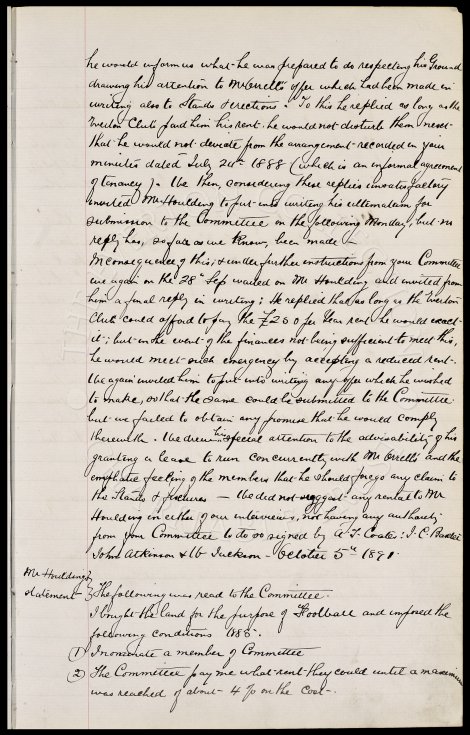 he would inform us what he was prepared to do respecting his Ground
drawing his attention to Mr Orrells offer which had been made in
writing also to Stands & erections. To this he replied as long as the
Everton Club paid him his rent, he would not disturb them next
that he would not deviate from the arrangement recorded in your
minutes dated July 24th 1888 (which is an informal agreement
of tenancy). We then, considering these replies unsatisfactory
invited Mr Houlding to put into writing his ultimatum for
submission to the Committee on the following Monday, but no
reply has, so far as we know, been made –
In consequence of this, & under further instruction from your Committee
we again on the 28th Sep waited on Mr Houlding and invited from
him a final reply in writing: He replied that as long as the Everton
Club could afford to pay the £250 per Year rent he would exact
it; but in the event of the finances not being sufficient to meet this,
he would meet such emergency by accepting a reduced rent.
We again invited him to put into writing any offer which he wished
to make, so that the same could be submitted to the Committee
but we failed to obtain any promise that he would comply
therewith. We drew his special attention to the advisability of his
granting a lease to run concurrently with Mr Orrells and the
emphatic feeling of the members that he should forego any claim to
the Stands & fixtures — We did not suggest any rental to Mr
Houlding in either of our interviews, not having any authority
from your Committee to do so signed by A. T. Coates: J. C. Baxter
John Atkinson & W Jackson – October 5th 1891
Mr Houlding's
statement
The following was read to the Committee.
I bought the land for the purpose of Football and imposed the
following conditions 1885.
(1) I nominate a member of Committee
(2) The Committee pay me what rent they could until a maximum
was reached of about 4 % on the cost –